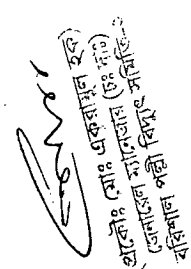 প্রকৌঃ (মোঃ একরামুল হক)
জেনারেল ম্যানেজার (চঃ দাঃ)
বরিশাল পল্লী বিদ্যুৎ সমিতি-২